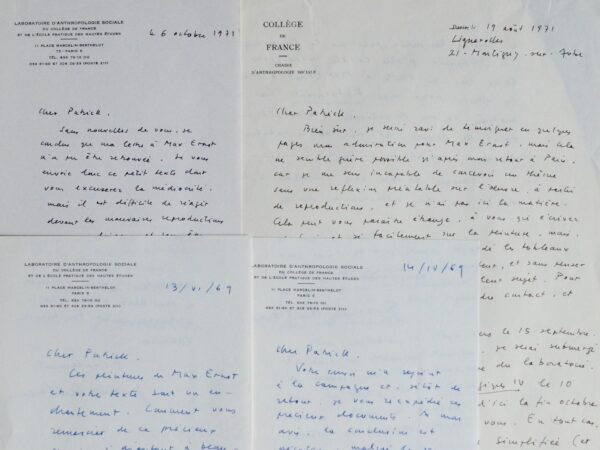 LABORATOIRE D'ANTHROPOLOGIE SOCIALE
DU COLLÈGE DE FRANCE
ET DE L'ÉCOLE PRATIQUE DES HAUTES ÉTUDES
11 PLACE MARCELIN-BERTHELOT
75 - PARIS 5
le 6 octobre 1971
Cher Patrick,
Sans nouvelles de vous, je
conclus que ma lettre à Max Ernst
n'a pu être retrouvée. Je vous
envoie donc ce petit texte dont
vous excuserez la médiocrité,
mais il est difficile de réagir
devant les mauvaises reproductions
COLLÈGE
DE
FRANCE
CHAIRE
D'ANTHROPOLOGIE SOCIALE
19 août 1971
Lignerolles
21 - Montigny-sur-Aube
Cher Patrick,
Bien sûr, je serai ravi de témoigner en quelques
pages mon admiration pour Max Ernst, mais cela
ne semble guère possible qu'après mon retour à Paris,
car je me sens incapable de concevoir un thème
sans une réflexion préalable sur l'œuvre, à partir
de reproductions, et je n'ai pas ici la matière.
Cela peut vous paraître étrange, à vous qui écrivez
et si facilement sur la peinture, mais,
de tableaux
et sans penser
sujet. Pour
du contact, et
le 15 septembre.
je serai submergé
du laboratoire.
IV le 10
d'ici la fin octobre
vous. En tout cas,
simplifié (et
LABORATOIRE D'ANTHROPOLOGIE SOCIALE
DU COLLÈGE DE FRANCE
ET DE L'ÉCOLE PRATIQUE DES HAUTES ÉTUDES
11 PLACE MARCELIN-BERTHELOT
PARIS 5
13/VI/69
Cher Patrick,
Ces peintures de Max Ernst
et votre texte sont un en-
chantement. Comment vous
remercier de ce précieux
LABORATOIRE D'ANTHROPOLOGIE SOCIALE
DU COLLÈGE DE FRANCE
ET DE L'ÉCOLE PRATIQUE DES HAUTES ÉTUDES
11 PLACE MARCELIN-BERTHELOT
PARIS 5
14/IV/69
Cher Patrick,
Votre envoi m'a rejoint
à la campagne et, sitôt de
retour, je vous réexpédie ces
précieux documents. A mon
avis, la conclusion est